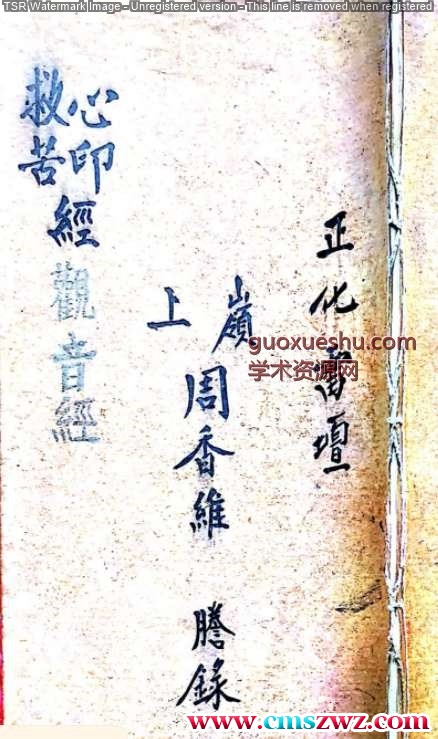 TSR Watermark Image - Unregistered version - This line is removed when registered
正化雷壇
嶺上
周香維 謄錄
心印
救苦
經觀音經
guoxueshu.com
学术资源网
www.cmszwz.com